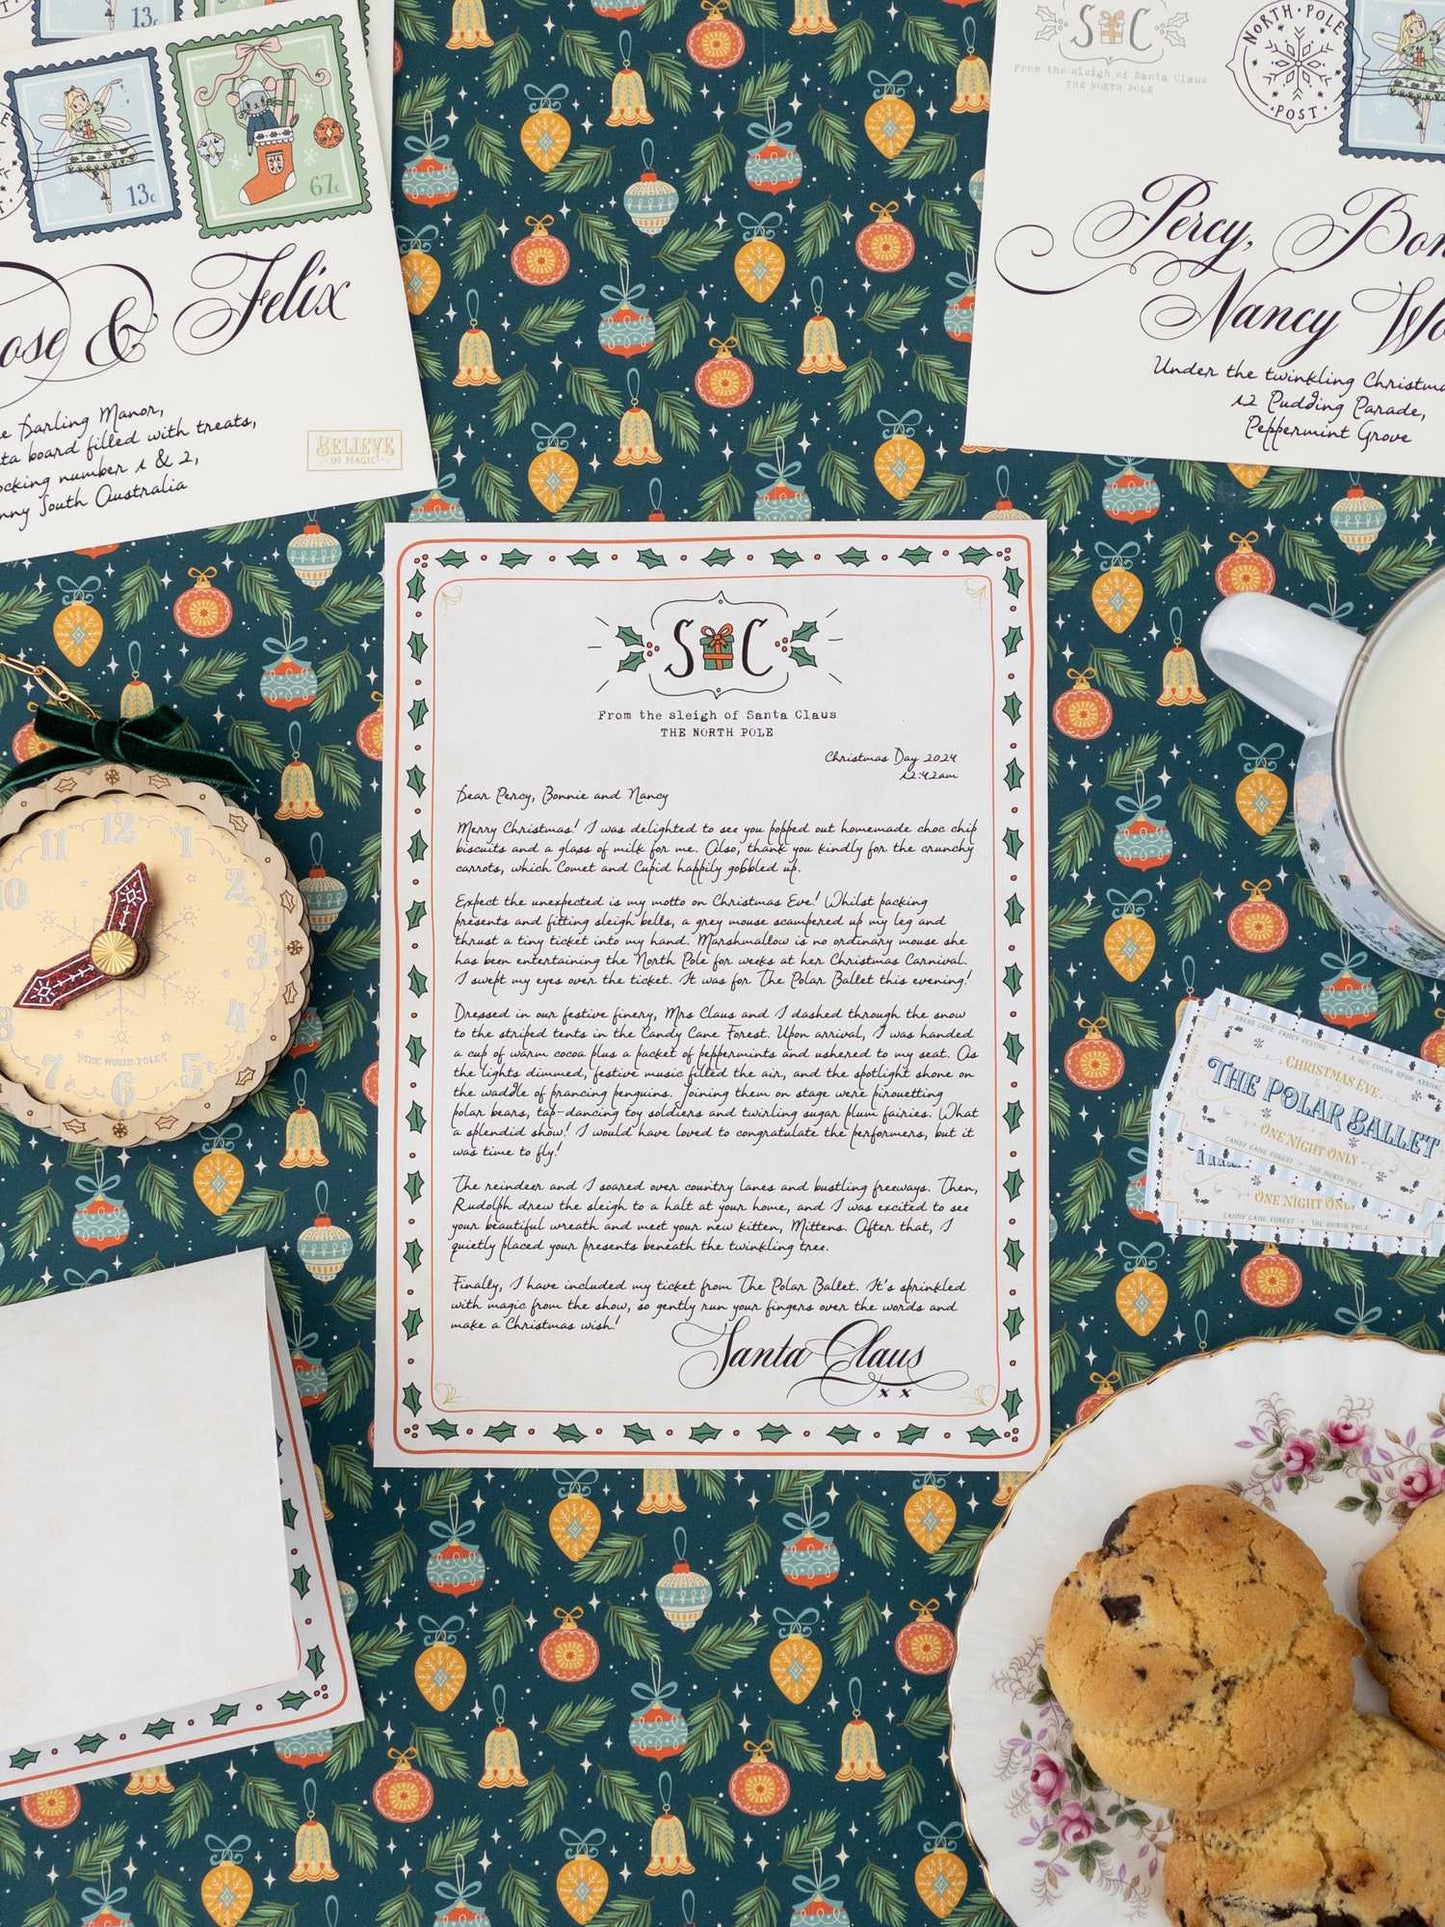 13c
13c
67c
ose & Felix
e Darling Manor,
ta board filled with treats,
ocking number 1 & 2,
nny South Australia
BELIEVE
IN MAGIC
S C
From the sleigh of Santa Claus
THE NORTH POLE
NORTH · POLE
· POST ·
Percy, Bon
Nancy Wo
Under the twinkling Christma
12 Pudding Parade,
Peppermint Grove
S C
From the sleigh of Santa Claus
THE NORTH POLE
Christmas Day 2024
12:42am
Dear Percy, Bonnie and Nancy
Merry Christmas! I was delighted to see you popped out homemade choc chip
biscuits and a glass of milk for me. Also, thank you kindly for the crunchy
carrots, which Comet and Cupid happily gobbled up.
Expect the unexpected is my motto on Christmas Eve! Whilst packing
presents and fitting sleigh bells, a grey mouse scampered up my leg and
thrust a tiny ticket into my hand. Marshmallow is no ordinary mouse she
has been entertaining the North Pole for weeks at her Christmas Carnival.
I swept my eyes over the ticket. It was for The Polar Ballet this evening!
Dressed in our festive finery, Mrs Claus and I dashed through the snow
to the striped tents in the Candy Cane Forest. Upon arrival, I was handed
a cup of warm cocoa plus a packet of peppermints and ushered to my seat. As
the lights dimmed, festive music filled the air, and the spotlight shone on
the waddle of prancing penguins. Joining them on stage were pirouetting
polar bears, tap-dancing toy soldiers and twirling sugar plum fairies. What
a splendid show! I would have loved to congratulate the performers, but it
was time to fly!
The reindeer and I soared over country lanes and bustling freeways. Then,
Rudolph drew the sleigh to a halt at your home, and I was excited to see
your beautiful wreath and meet your new kitten, Mittens. After that, I
quietly placed your presents beneath the twinkling tree.
Finally, I have included my ticket from The Polar Ballet. It's sprinkled
with magic from the show, so gently run your fingers over the words and
make a Christmas wish!
Santa Claus
x x
12
11 1
10 2
3
8 4
7 5
6
THE NORTH POLE
DRESS CODE: FANCY FESTIVE
A HOT COCOA UPON ARRIVAL
CHRISTMAS EVE
THE POLAR BALLET
ONE NIGHT ONLY
CANDY CANE FOREST • THE NORTH POLE
ONE NIGHT ON
CANDY CANE FOREST • THE NORTH POLE